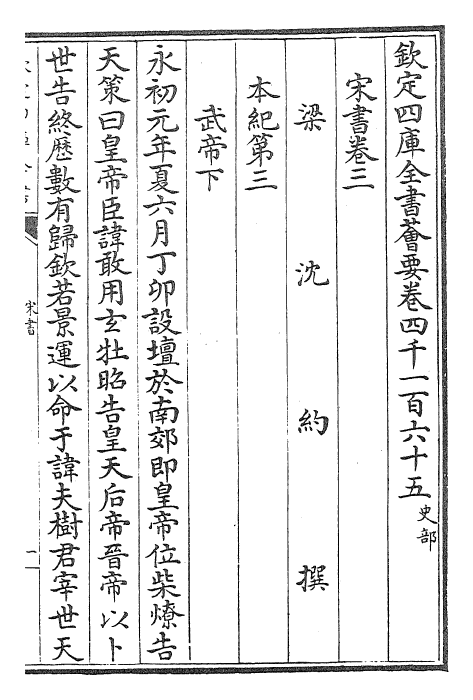 欽定四庫全書薈要卷四千一百六十五 史部
宋書卷三
梁 沈 約 撰
本紀第三
武帝下
永初元年夏六月丁卯設壇於南郊即皇帝位柴燎告
天策曰皇帝臣諱敢用玄牡昭告皇天后帝晉帝以卜
世告終歷數有歸欽若景運以命于諱夫樹君宰世天
宋書
一